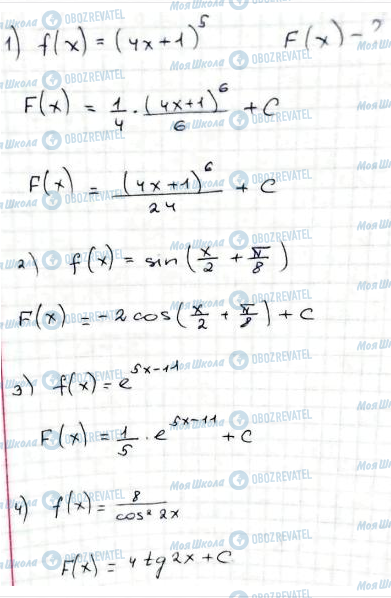 1) f(x) = (4x+1)^5 F(x) - ?
F(x) = 1/4 · (4x+1)^6/6 + C
F(x) = (4x+1)^6/24 + C
2) f(x) = sin(x/2 + π/8)
F(x) = -2 cos(x/2 + π/8) + C
3) f(x) = e^(5x-11)
F(x) = 1/5 · e^(5x-11) + C
4) f(x) = 8/cos² 2x
F(x) = 4 tg 2x + C
Моя Школа OBOZREVATEL